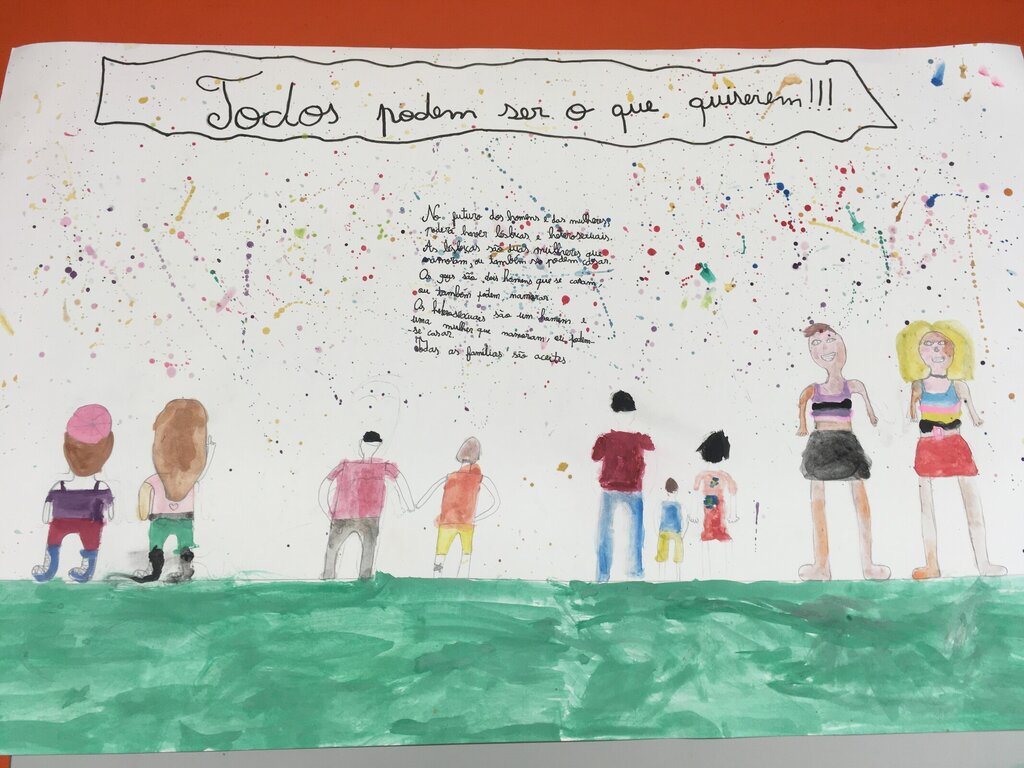 Todos podem ser o que quiserem!!!
No futuro dos homens e das mulheres,
poderá haver lésbicas e heterosexuais.
As lésbicas são duas mulheres que
namoram, ou também se podem casar.
Os gays são dois homens que se casam,
ou também podem namorar.
Os heterosexuais são um homem e
uma mulher que namoram, ou podem-
-se casar.
Todas as famílias são aceites